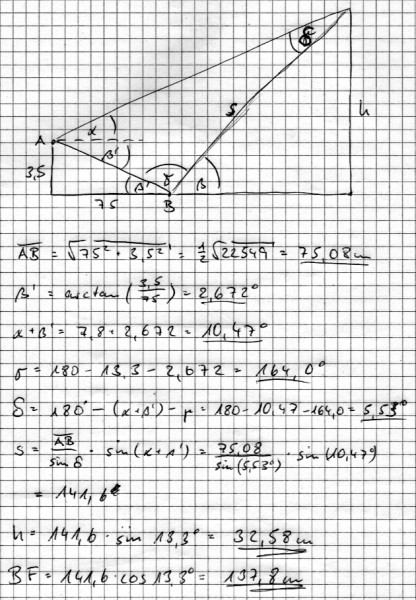 δ
α
A
β'
S
h
3,5
β'
γ
β
75
B
AB = √75² + 3,5² = ½ √22549 = 75,08m
β' = arctan (3,5/75) = 2,672°
α+β' = 7,8 + 2,672 = 10,47°
γ = 180 - 13,3 - 2,672 = 164,0°
δ = 180° - (α+β') - γ = 180 - 10,47 - 164,0 = 5,53°
s = AB/sin δ · sin (α+β') = 75,08/sin(5,53°) · sin (10,47°)
= 141,6
h = 141,6 · sin 13,3° = 32,58m
BF = 141,6 · cos 13,3° = 137,8m